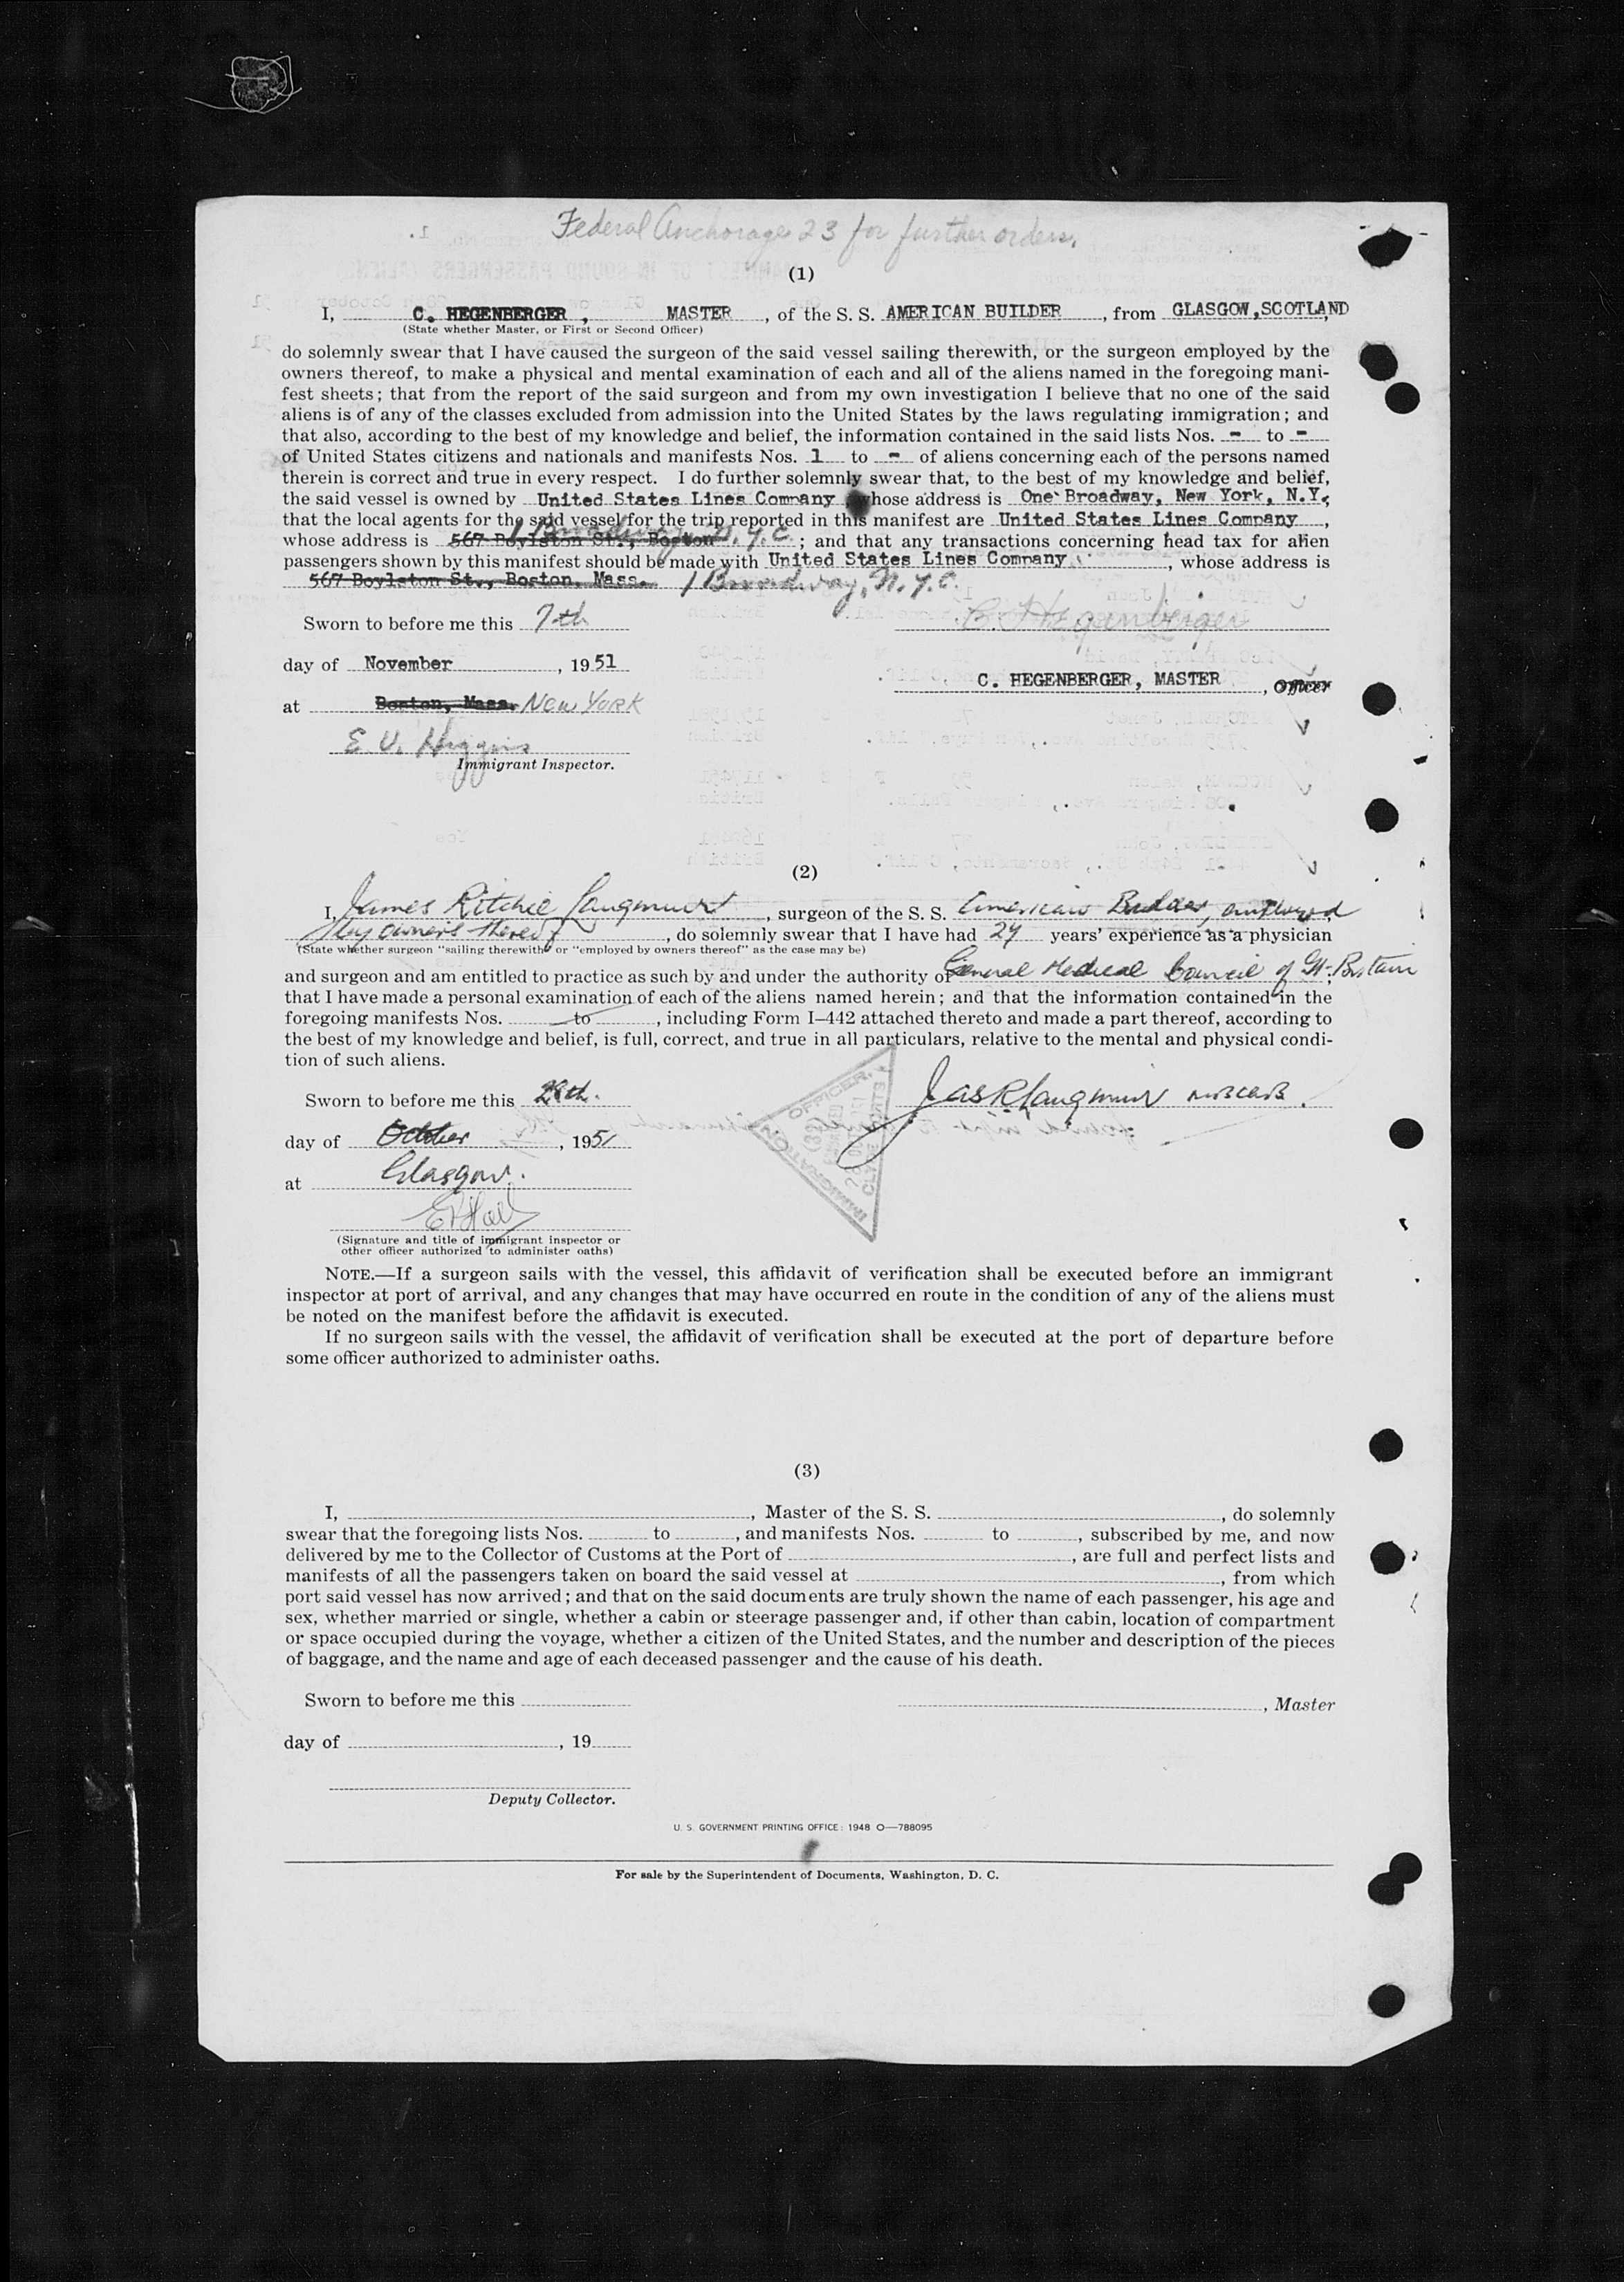 Federal Anchorage 23 for further orders.
(1)
I, C. HEGENBERGER, MASTER, of the S. S. AMERICAN BUILDER, from GLASGOW,SCOTLAND
(State whether Master, or First or Second Officer)
do solemnly swear that I have caused the surgeon of the said vessel sailing therewith, or the surgeon employed by the
owners thereof, to make a physical and mental examination of each and all of the aliens named in the foregoing mani-
fest sheets; that from the report of the said surgeon and from my own investigation I believe that no one of the said
aliens is of any of the classes excluded from admission into the United States by the laws regulating immigration; and
that also, according to the best of my knowledge and belief, the information contained in the said lists Nos. - to -
of United States citizens and nationals and manifests Nos. 1 to - of aliens concerning each of the persons named
therein is correct and true in every respect. I do further solemnly swear that, to the best of my knowledge and belief,
the said vessel is owned by United States Lines Company whose address is One Broadway, New York, N.Y.
that the local agents for the said vessel for the trip reported in this manifest are United States Lines Company,
whose address is 567 Boylston St., Boston 1 Broadway N.Y.C.; and that any transactions concerning head tax for alien
passengers shown by this manifest should be made with United States Lines Company, whose address is
567 Boylston St., Boston, Mass. 1 Broadway, N.Y.C.
Sworn to before me this 7th C. Hegenberger
day of November, 1951
C. HEGENBERGER, MASTER, Officer
at Boston, Mass. NEW YORK
E. V. Higgins
Immigrant Inspector.
(2)
I, James Ritchie Langmuir, surgeon of the S. S. American Builder, employed
by owners thereof, do solemnly swear that I have had 24 years' experience as a physician
(State whether surgeon "sailing therewith" or "employed by owners thereof" as the case may be)
and surgeon and am entitled to practice as such by and under the authority of General Medical Council of Gt. Britain;
that I have made a personal examination of each of the aliens named herein; and that the information contained in the
foregoing manifests Nos. to, including Form I-442 attached thereto and made a part thereof, according to
the best of my knowledge and belief, is full, correct, and true in all particulars, relative to the mental and physical condi-
tion of such aliens.
IMMIGRATION OFFICER
Sworn to before me this 28th. Jas R Langmuir
day of October, 1951
at Glasgow.
(Signature and title of immigrant inspector or
other officer authorized to administer oaths)
NOTE.—If a surgeon sails with the vessel, this affidavit of verification shall be executed before an immigrant
inspector at port of arrival, and any changes that may have occurred en route in the condition of any of the aliens must
be noted on the manifest before the affidavit is executed.
If no surgeon sails with the vessel, the affidavit of verification shall be executed at the port of departure before
some officer authorized to administer oaths.
(3)
I, , Master of the S. S. , do solemnly
swear that the foregoing lists Nos. to , and manifests Nos. to , subscribed by me, and now
delivered by me to the Collector of Customs at the Port of , are full and perfect lists and
manifests of all the passengers taken on board the said vessel at , from which
port said vessel has now arrived; and that on the said documents are truly shown the name of each passenger, his age and
sex, whether married or single, whether a cabin or steerage passenger and, if other than cabin, location of compartment
or space occupied during the voyage, whether a citizen of the United States, and the number and description of the pieces
of baggage, and the name and age of each deceased passenger and the cause of his death.
Sworn to before me this , Master
day of , 19
Deputy Collector.
U. S. GOVERNMENT PRINTING OFFICE: 1948 O—788095
For sale by the Superintendent of Documents, Washington, D. C.